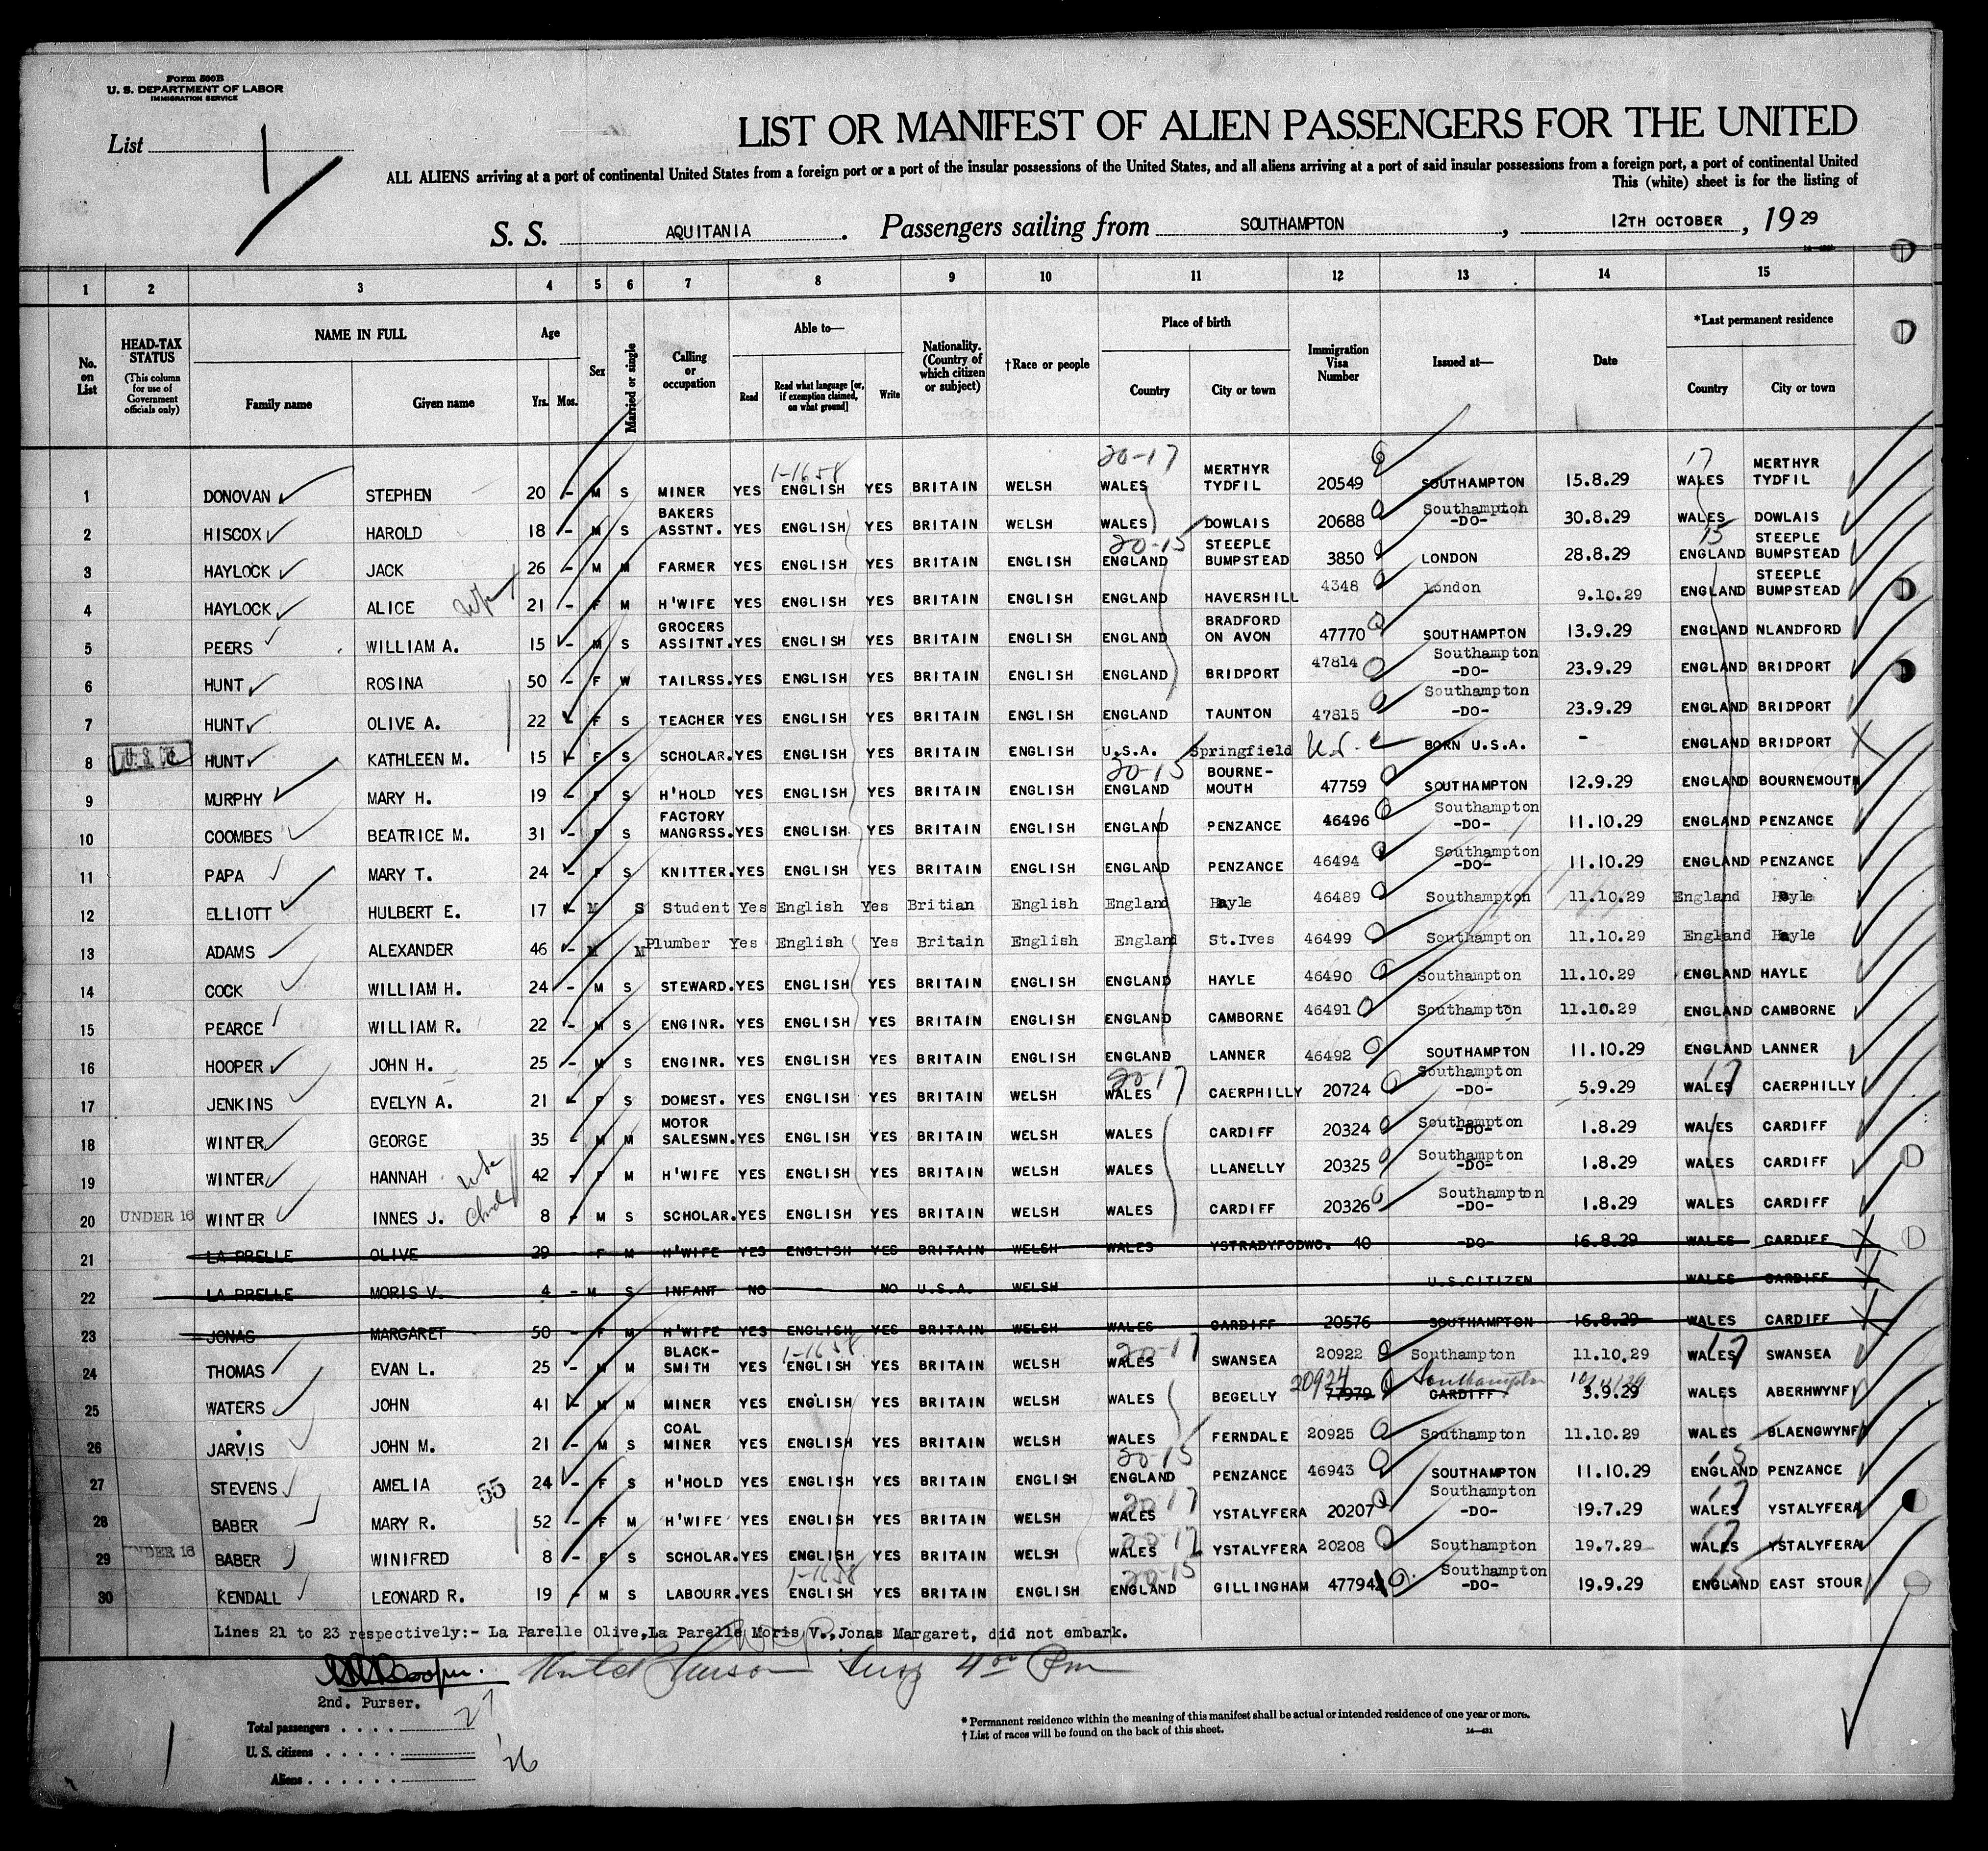 Form 500B
U. S. DEPARTMENT OF LABOR
IMMIGRATION SERVICE
List 1
LIST OR MANIFEST OF ALIEN PASSENGERS FOR THE UNITED
ALL ALIENS arriving at a port of continental United States from a foreign port or a port of the insular possessions of the United States, and all aliens arriving at a port of said insular possessions from a foreign port, a port of continental United
This (white) sheet is for the listing of
S. S. AQUITANIA. Passengers sailing from SOUTHAMPTON, 12TH OCTOBER, 1929
1 2 3 4 5 6 7 8 9 10 11 12 13 14 15
No. on List
HEAD-TAX STATUS (This column for use of Government officials only)
NAME IN FULL Family name Given name
Age Yrs. Mos.
Sex
Married or single
Calling or occupation
Able to— Read Read what language [or, if exemption claimed, on what ground] Write
Nationality. (Country of which citizen or subject)
†Race or people
Place of birth Country City or town
Immigration Visa Number
Issued at—
Date
*Last permanent residence Country City or town
20-17 1-1658 17
1 DONOVAN STEPHEN 20 - M S MINER YES ENGLISH YES BRITAIN WELSH WALES MERTHYR TYDFIL 20549 SOUTHAMPTON 15.8.29 WALES MERTHYR TYDFIL
2 HISCOX HAROLD 18 - M S BAKERS ASSTNT. YES ENGLISH YES BRITAIN WELSH WALES DOWLAIS 20688 Southampton -DO- 30.8.29 WALES DOWLAIS
20-15 15
3 HAYLOCK JACK 26 - M M FARMER YES ENGLISH YES BRITAIN ENGLISH ENGLAND STEEPLE BUMPSTEAD 3850 LONDON 28.8.29 ENGLAND STEEPLE BUMPSTEAD
4 HAYLOCK ALICE wife 21 - F M H'WIFE YES ENGLISH YES BRITAIN ENGLISH ENGLAND HAVERSHILL 4348 London 9.10.29 ENGLAND STEEPLE BUMPSTEAD
5 PEERS WILLIAM A. 15 - M S GROCERS ASSITNT. YES ENGLISH YES BRITAIN ENGLISH ENGLAND BRADFORD ON AVON 47770 SOUTHAMPTON 13.9.29 ENGLAND NLANDFORD
6 HUNT ROSINA 50 - F W TAILRSS. YES ENGLISH YES BRITAIN ENGLISH ENGLAND BRIDPORT 47814 Southampton -DO- 23.9.29 ENGLAND BRIDPORT
7 HUNT OLIVE A. 22 F S TEACHER YES ENGLISH YES BRITAIN ENGLISH ENGLAND TAUNTON 47815 Southampton -DO- 23.9.29 ENGLAND BRIDPORT
8 U.S.C. HUNT KATHLEEN M. 15 - F S SCHOLAR. YES ENGLISH YES BRITAIN ENGLISH U.S.A. Springfield BORN U.S.A. - ENGLAND BRIDPORT
20-15
9 MURPHY MARY H. 19 - F S H'HOLD YES ENGLISH YES BRITAIN ENGLISH ENGLAND BOURNE-MOUTH 47759 SOUTHAMPTON 12.9.29 ENGLAND BOURNEMOUTH
10 COOMBES BEATRICE M. 31 - F S FACTORY MANGRSS. YES ENGLISH YES BRITAIN ENGLISH ENGLAND PENZANCE 46496 Southampton -DO- 11.10.29 ENGLAND PENZANCE
11 PAPA MARY T. 24 - F S KNITTER. YES ENGLISH YES BRITAIN ENGLISH ENGLAND PENZANCE 46494 Southampton -DO- 11.10.29 ENGLAND PENZANCE
12 ELLIOTT HULBERT E. 17 - M S Student Yes English Yes Britian English England Hayle 46489 Southampton 11.10.29 England Hayle
13 ADAMS ALEXANDER 46 - M M Plumber Yes English Yes Britain English England St.Ives 46499 Southampton 11.10.29 England Hayle
14 COCK WILLIAM H. 24 - M S STEWARD. YES ENGLISH YES BRITAIN ENGLISH ENGLAND HAYLE 46490 Southampton 11.10.29 ENGLAND HAYLE
15 PEARCE WILLIAM R. 22 - M S ENGINR. YES ENGLISH YES BRITAIN ENGLISH ENGLAND CAMBORNE 46491 Southampton 11.10.29 ENGLAND CAMBORNE
16 HOOPER JOHN H. 25 - M S ENGINR. YES ENGLISH YES BRITAIN ENGLISH ENGLAND LANNER 46492 SOUTHAMPTON 11.10.29 ENGLAND LANNER
20-17 17
17 JENKINS EVELYN A. 21 - F S DOMEST. YES ENGLISH YES BRITAIN WELSH WALES CAERPHILLY 20724 Southampton -DO- 5.9.29 WALES CAERPHILLY
18 WINTER GEORGE 35 - M M MOTOR SALESMN. YES ENGLISH YES BRITAIN WELSH WALES CARDIFF 20324 Southampton -DO- 1.8.29 WALES CARDIFF
19 WINTER HANNAH wife 42 - F M H'WIFE YES ENGLISH YES BRITAIN WELSH WALES LLANELLY 20325 Southampton -DO- 1.8.29 WALES CARDIFF
20 UNDER 16 WINTER INNES J. child 8 - M S SCHOLAR. YES ENGLISH YES BRITAIN WELSH WALES CARDIFF 20326 Southampton -DO- 1.8.29 WALES CARDIFF
21 LA PRELLE OLIVE 29 - F M H'WIFE YES ENGLISH YES BRITAIN WELSH WALES YSTRADYFODWG. 40 -DO- 16.8.29 WALES CARDIFF
22 LA PRELLE MORIS V. 4 - M S INFANT NO - NO U.S.A. WELSH U.S.CITIZEN WALES CARDIFF
23 JONAS MARGARET 50 - F M H'WIFE YES ENGLISH YES BRITAIN WELSH WALES CARDIFF 20576 SOUTHAMPTON 16.8.29 WALES CARDIFF
1-1658 20-17 17
24 THOMAS EVAN L. 25 - M M BLACK-SMITH YES ENGLISH YES BRITAIN WELSH WALES SWANSEA 20922 Southampton 11.10.29 WALES SWANSEA
25 WATERS JOHN 41 - M M MINER YES ENGLISH YES BRITAIN WELSH WALES BEGELLY 20924 77979 Southampton CARDIFF 3.9.29 WALES ABERHWYNFI
26 JARVIS JOHN M. 21 - M S COAL MINER YES ENGLISH YES BRITAIN WELSH WALES FERNDALE 20925 Southampton 11.10.29 WALES BLAENGWYNFI
20-15 15
27 STEVENS AMELIA 24 - F S H'HOLD YES ENGLISH YES BRITAIN ENGLISH ENGLAND PENZANCE 46943 SOUTHAMPTON 11.10.29 ENGLAND PENZANCE
55 20-17 17
28 BABER MARY R. 52 - F M H'WIFE YES ENGLISH YES BRITAIN WELSH WALES YSTALYFERA 20207 Southampton -DO- 19.7.29 WALES YSTALYFERA
20-17 17
29 UNDER 16 BABER WINIFRED 8 - F S SCHOLAR. YES ENGLISH YES BRITAIN WELSH WALES YSTALYFERA 20208 Southampton 19.7.29 WALES YSTALYFERA
1-1658 20-15 15
30 KENDALL LEONARD R. 19 - M S LABOURR. YES ENGLISH YES BRITAIN ENGLISH ENGLAND GILLINGHAM 47794 Southampton -DO- 19.9.29 ENGLAND EAST STOUR
Lines 21 to 23 respectively:- La Parelle Olive,La Parelle Moris V.,Jonas Margaret, did not embark.
2nd. Purser.
Total passengers . . . . 27
U. S. citizens . . . . . 1
Aliens . . . . . . 26
* Permanent residence within the meaning of this manifest shall be actual or intended residence of one year or more.
† List of races will be found on the back of this sheet.
14—431